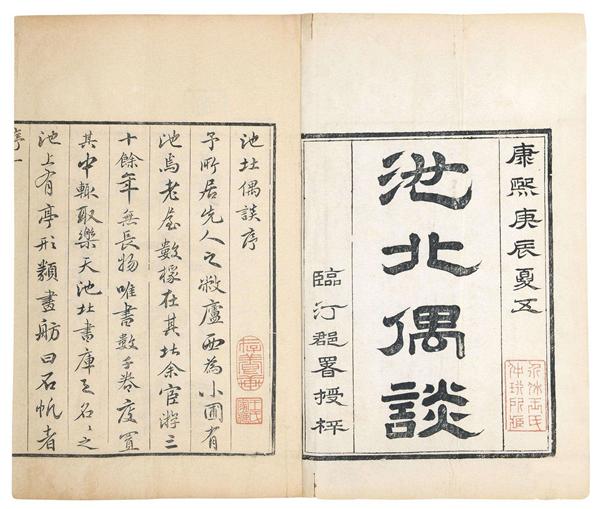 康熙庚辰夏五
池北偶談
臨汀郡署授梓
池北偶談序
予所居先人之敝廬西為小圃有
池焉老屋數椽在其北余宦游三
十餘年無長物唯書數千卷庋置
其中輒取樂天池北書庫之名〻之
池上有亭形類畫舫曰石帆者
序一